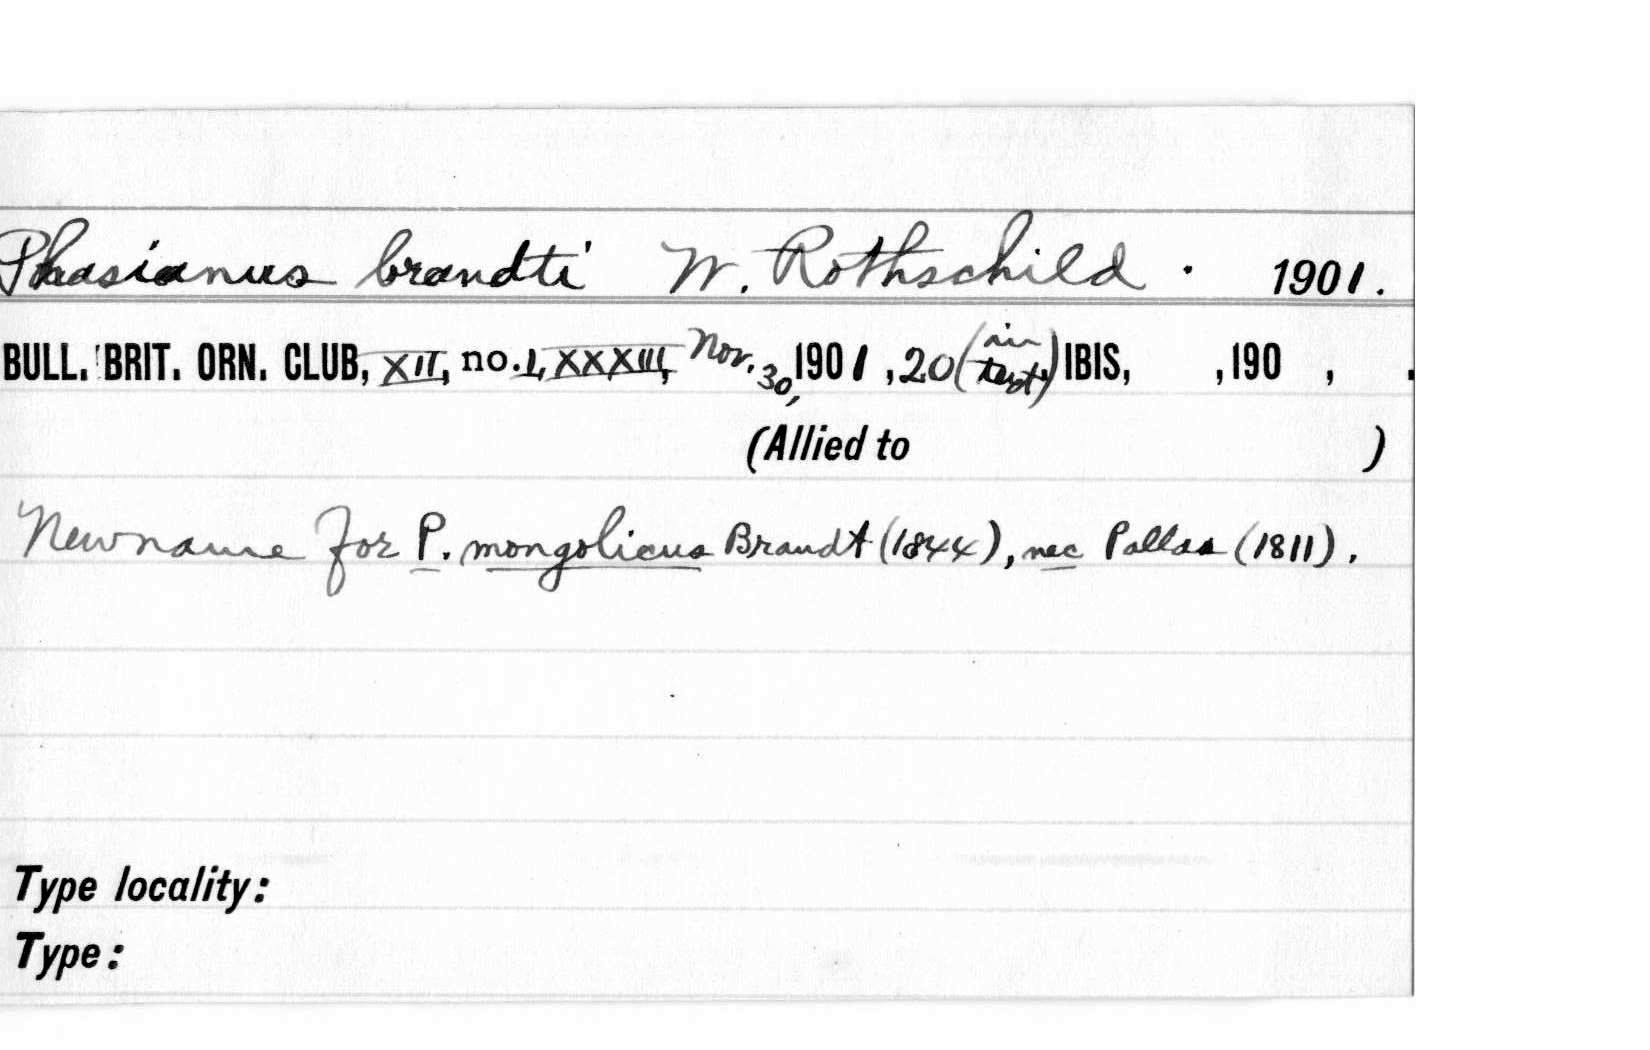 Phasianus brandti W. Rothschild. 1901.
BULL. BRIT. ORN. CLUB, XII, no. I, XXXIII, Nov. 30, 1901, 20 (in text) IBIS, , 190 , .
(Allied to )
New name for P. mongolicus Brandt (1844), nec Pallas (1811).
Type locality:
Type: